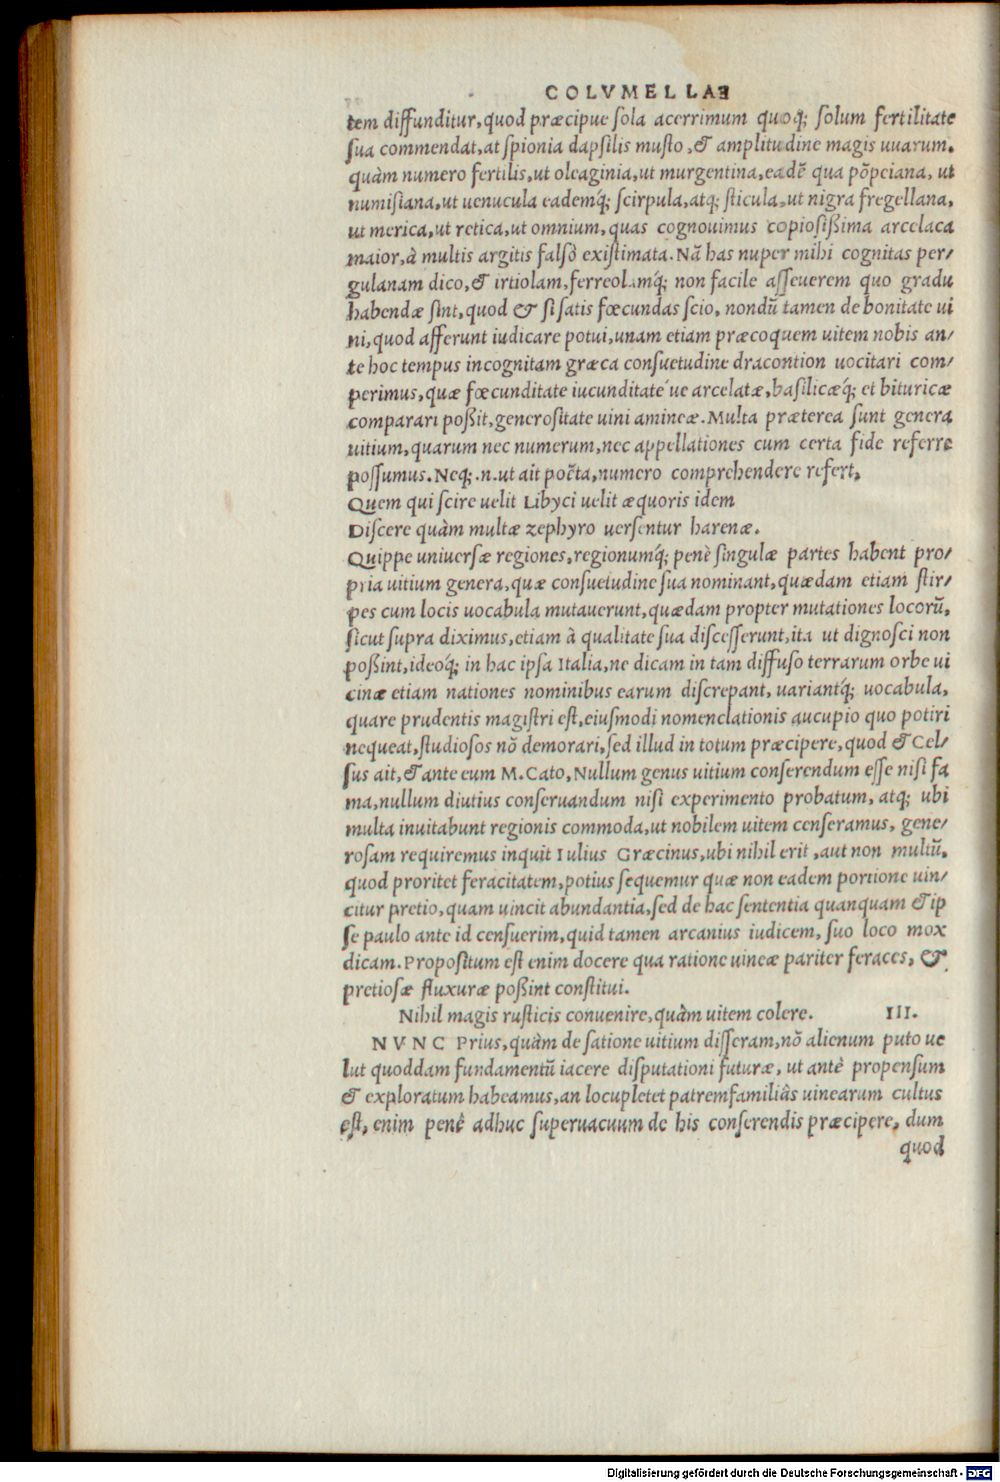 COLVMELLAE
tem diffunditur, quod præcipue sola acerrimum quoq; solum fertilitate
sua commendat, at spionia dapsilis musto, & amplitudine magis uuarum.
quàm numero fertilis, ut oleaginia, ut murgentina, eadē qua pōpeiana, ut
numisiana, ut uenucula eademq́; scirpula, atq; sticula, ut nigra fregellana,
ut merica, ut retica, ut omnium, quas cognouimus copiosißima arcelaca
maior, à multis argitis falsò existimata. Nā has nuper mihi cognitas per/
gulanam dico, & irtiolam, ferreolamq́; non facile asseuerem quo gradu
habendæ sint, quod & si satis fœcundas scio, nondū tamen de bonitate ui
ni, quod afferunt iudicare potui, unam etiam præcoquem uitem nobis an/
te hoc tempus incognitam græca consuetudine dracontion uocitari com/
perimus, quæ fœcunditate iucunditate´ue arcelatæ, basilicæq́; et bituricæ
comparari poßit, generositate uini amineæ. Multa præterea sunt genera
uitium, quarum nec numerum, nec appellationes cum certa fide referre
possumus. Neq; .n. ut ait poëta, numero comprehendere refert,
Quem qui scire uelit Libyci uelit æquoris idem
Discere quàm multæ zephyro uersentur harenæ.
Quippe uniuersæ regiones, regionumq́; penè singulæ partes habent pro/
pria uitium genera, quæ consuetudine sua nominant, quædam etiam stir/
pes cum locis uocabula mutauerunt, quædam propter mutationes locorū,
sicut supra diximus, etiam à qualitate sua discesserunt, ita ut dignosci non
poßint, ideoq́; in hac ipsa Italia, ne dicam in tam diffuso terrarum orbe ui
cinæ etiam nationes nominibus earum discrepant, uariantq́; uocabula,
quare prudentis magistri est, eiusmodi nomenclationis aucupio quo potiri
nequeat, studiosos nō demorari, sed illud in totum præcipere, quod & Cel/
sus ait, & ante eum M. Cato, Nullum genus uitium conserendum esse nisi fa
ma, nullum diutius conseruandum nisi experimento probatum, atq; ubi
multa inuitabunt regionis commoda, ut nobilem uitem censeramus, gene/
rosam requiremus inquit Iulius Græcinus, ubi nihil erit, aut non multū,
quod proritet feracitatem, potius sequemur quæ non eadem portione uin/
citur pretio, quam uincit abundantia, sed de hac sententia quanquam & ip
se paulo ante id censuerim, quid tamen arcanius iudicem, suo loco mox
dicam. Propositum est enim docere qua ratione uineæ pariter feraces, &
pretiosæ fluxuræ poßint constitui.
Nihil magis rusticis conuenire, quàm uitem colere. III.
NVNC Prius, quàm de satione uitium disseram, nō alienum puto ue
lut quoddam fundamentū iacere disputationi futuræ, ut antè propensum
& exploratum habeamus, an locupletet patremfamiliâs uinearum cultus
est, enim penè adhuc superuacuum de his conserendis præcipere, dum
quod
Digitalisierung gefördert durch die Deutsche Forschungsgemeinschaft - DFG